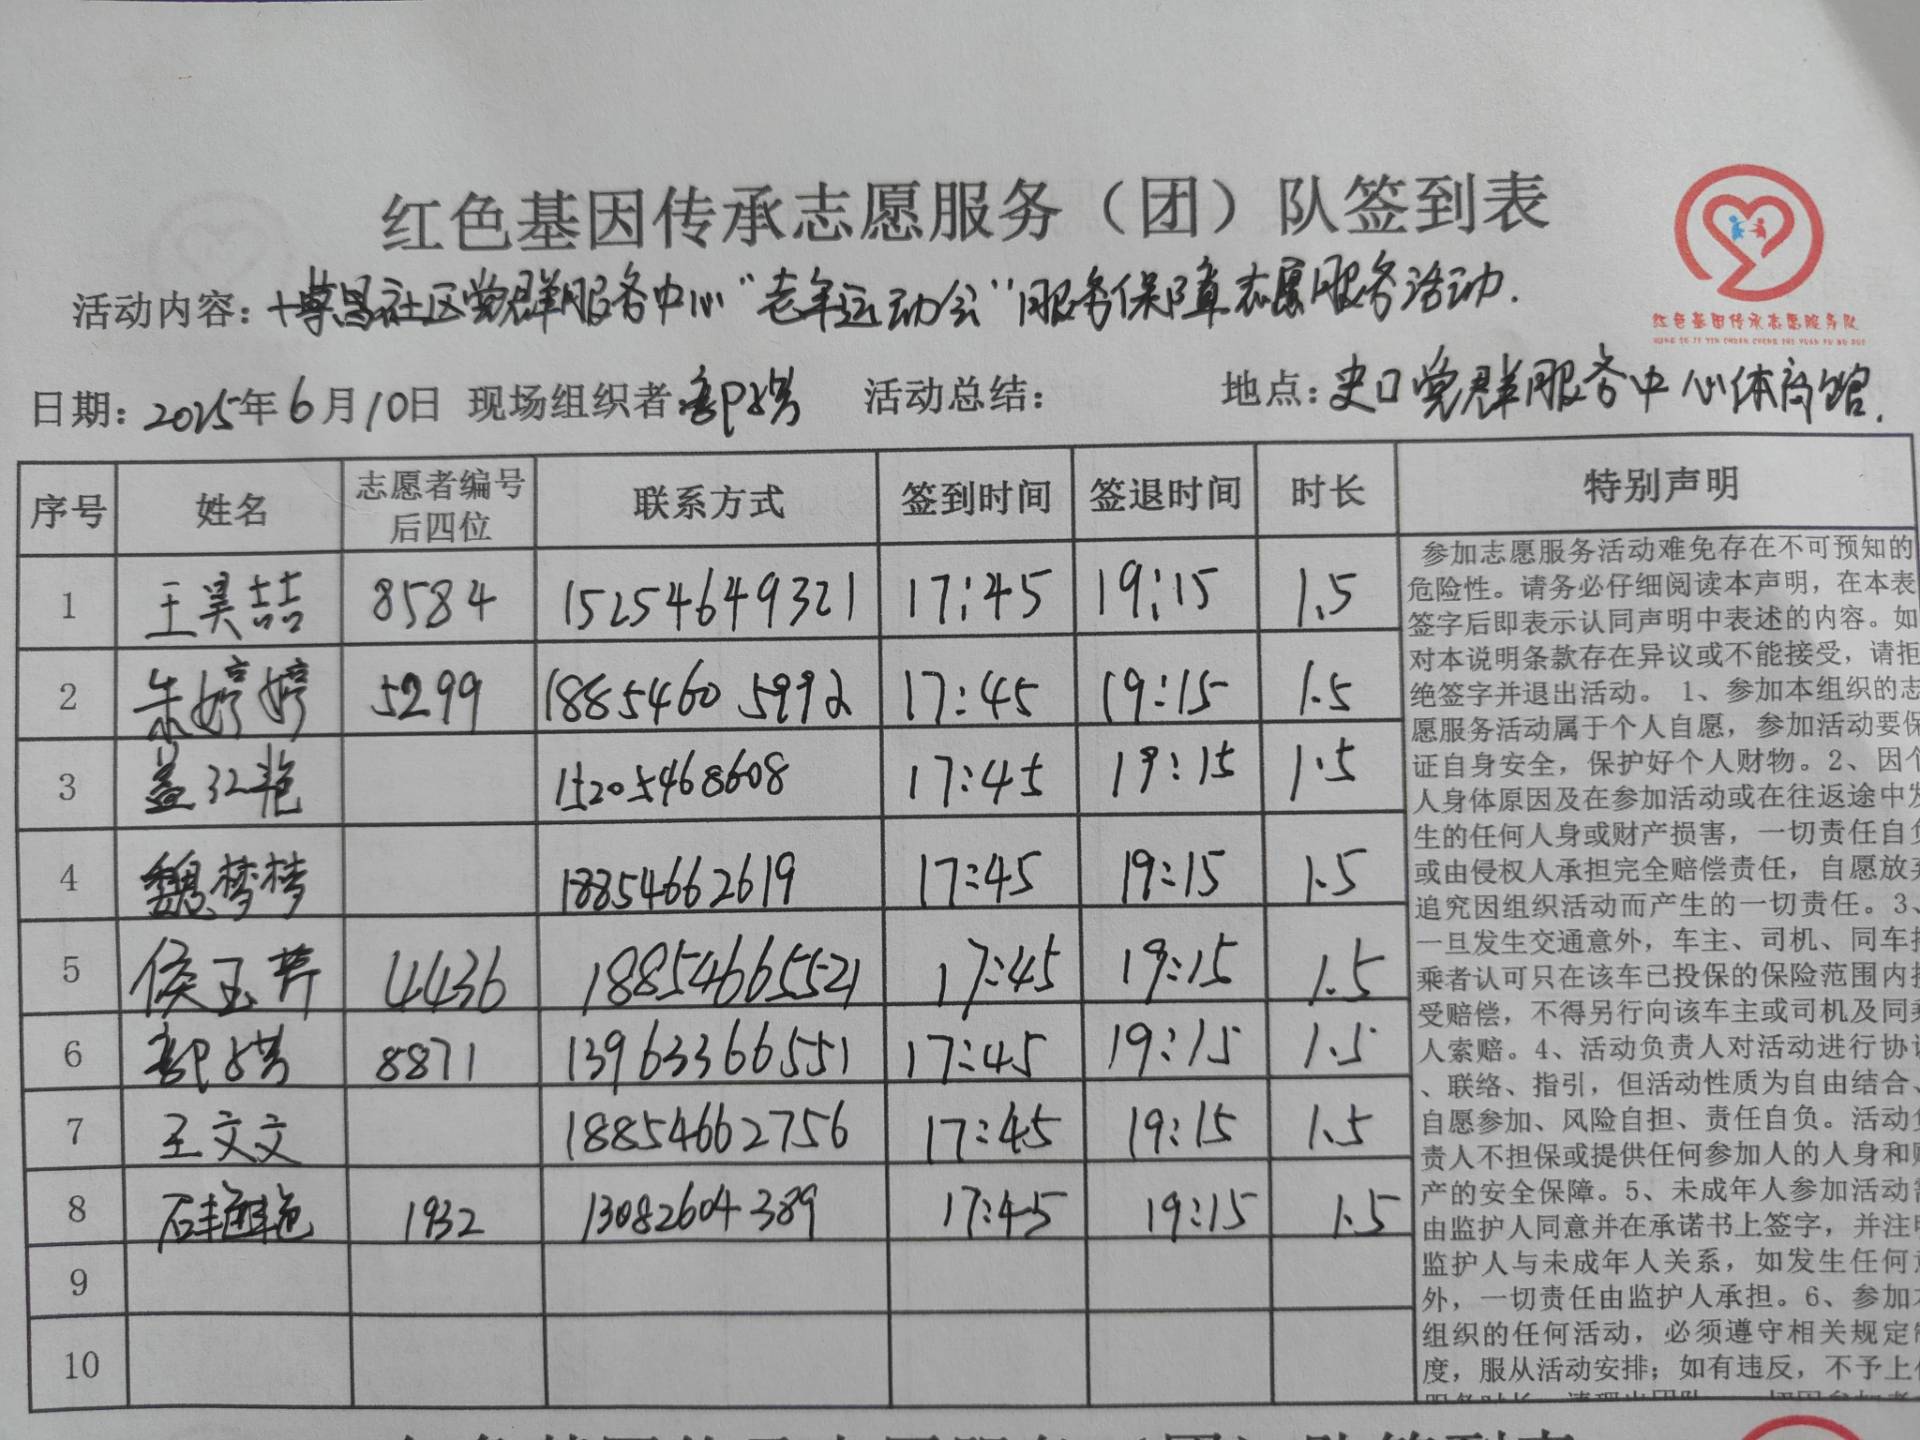 红色基因传承志愿服务（团）队签到表
活动内容：博昌社区党群服务中心“老年运动会”服务保障志愿服务活动.
红色基因传承志愿服务队
HONG SE JI YIN CHUAN CHENG ZHI YUAN FU WU DUI
日期：2025年6月10日 现场组织者 活动总结： 地点：史口党群服务中心体育馆.
序号 姓名 志愿者编号后四位 联系方式 签到时间 签退时间 时长 特别声明
1 王昊喆 8584 15254649321 17:45 19:15 1.5
2 朱婷婷 5299 18854605992 17:45 19:15 1.5
3 盖红艳 15205468608 17:45 19:15 1.5
4 魏梦梦 18854662619 17:45 19:15 1.5
5 侯玉芹 4436 18854665521 17:45 19:15 1.5
6 8871 13963366551 17:45 19:15 1.5
7 王文文 18854662756 17:45 19:15 1.5
8 石艳艳 1932 13082604389 17:45 19:15 1.5
9
10
参加志愿服务活动难免存在不可预知的
危险性。请务必仔细阅读本声明，在本表
签字后即表示认同声明中表述的内容。如
对本说明条款存在异议或不能接受，请拒
绝签字并退出活动。 1、参加本组织的志
愿服务活动属于个人自愿，参加活动要保
证自身安全，保护好个人财物。2、因个
人身体原因及在参加活动或在往返途中发
生的任何人身或财产损害，一切责任自负
或由侵权人承担完全赔偿责任，自愿放弃
追究因组织活动而产生的一切责任。3、
一旦发生交通意外，车主、司机、同车搭
乘者认可只在该车已投保的保险范围内接
受赔偿，不得另行向该车主或司机及同乘
人索赔。4、活动负责人对活动进行协调
、联络、指引，但活动性质为自由结合、
自愿参加、风险自担、责任自负。活动负
责人不担保或提供任何参加人的人身和财
产的安全保障。5、未成年人参加活动需
由监护人同意并在承诺书上签字，并注明
监护人与未成年人关系，如发生任何意
外，一切责任由监护人承担。6、参加本
组织的任何活动，必须遵守相关规定制
度，服从活动安排；如有违反，不予上传